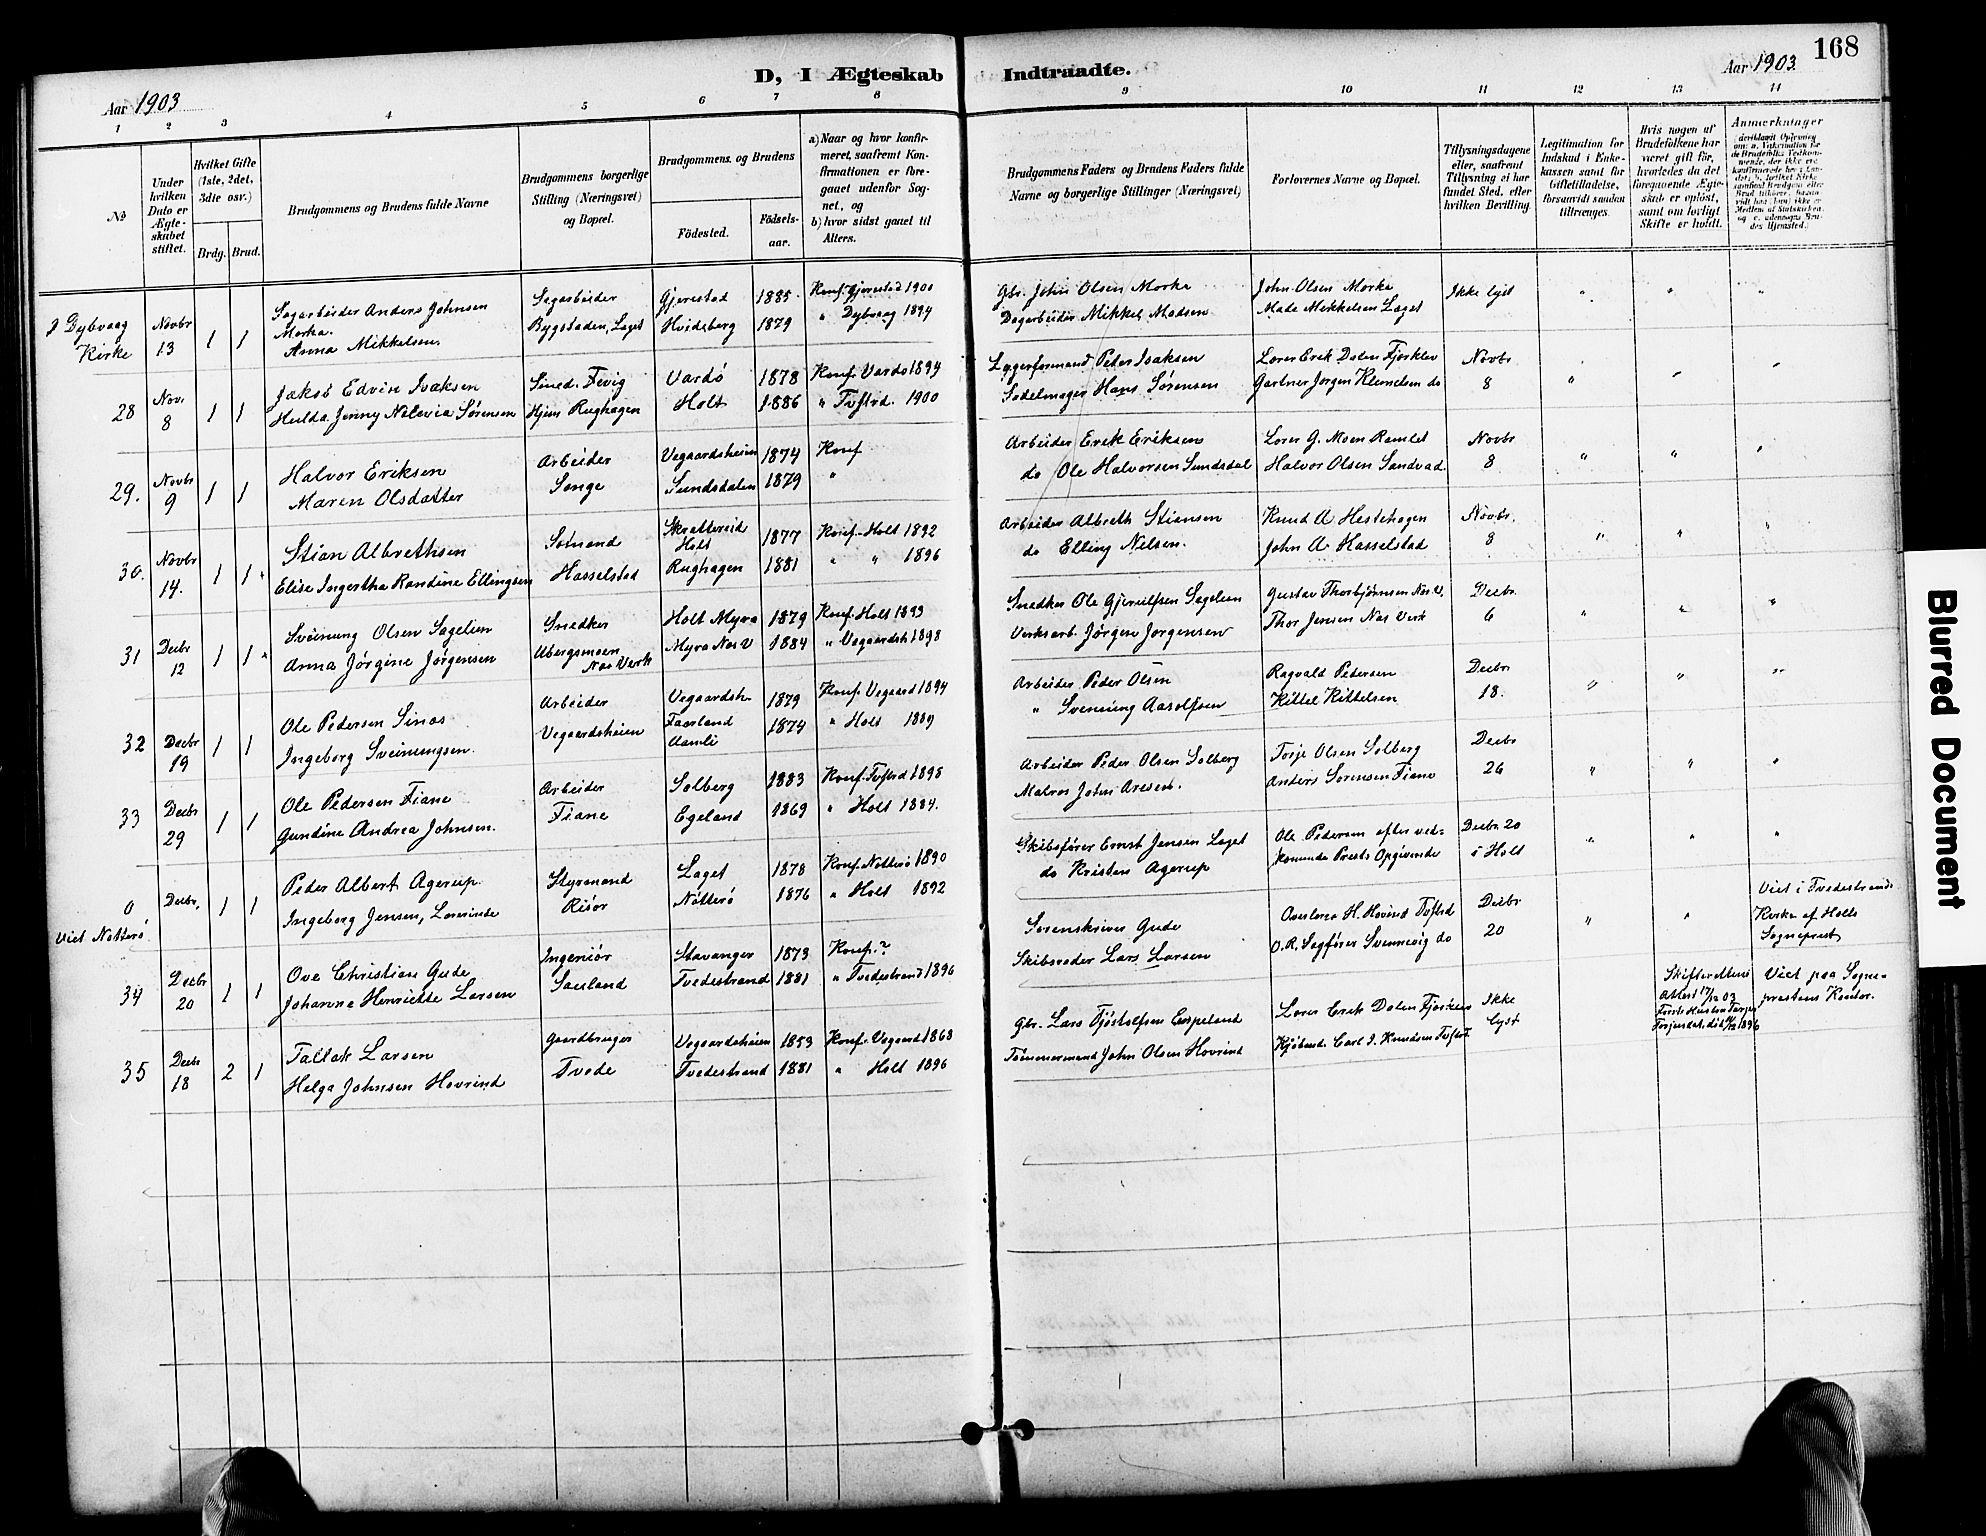 168
D, I Ægteskab Indtraadte.
Aar 1903
Aar 1903.
1 2 3 4 5 6 7 8 9 10 11 12 13 14
No
Under hvilken Dato er Ægteskabet stiftet.
Hvilket Gifte (1ste, 2det, 3die osv.)
Brdg. Brud.
Brudgommens og Brudens fulde Navne
Brudgommens borgerlige Stilling (Næringsvei) og Bopæl.
Brudgommens og Brudens
Födested.
Födselsaar.
a) Naar og hvor konfirmeret, saafremt Konfirmationen er foregaaet udenfor Sognet, og
b) hvor sidst gaaet til Alters.
Brudgommens Faders og Brudens Faders fulde Navne og borgerlige Stillinger (Næringsvei)
Forlovernes Navne og Bopæl.
Tillysningsdagene eller, saafremt Tillysning ei har fundet Sted, efter hvilken Bevilling
Legitimation for Indskud i Enkekassen samt for Giftetilladelse, forsaavidt saadan tiltrænges.
Hvis nogen af Brudefolkene har været gift för, hvorledes da det foregaaende Ægteskab er oplöst, samt om lovligt Skifte er holdt.
Anmærkninger
I Dybvaag Kirke
Novbr 13 1 1
Sagarbeider Anders Johnsen Morka.
Anna Mikkelsen.
Sagarbeider
Bygstaden, Laget
Gjerestad 1885
Hvideberg 1879
Konf. Gjerestad 1900
" Dybvaag 1894
Gbr. John Olsen Morka
Dagarbeider Mikkel Madsen
John Olsen Morka
Mads Mikkelsen Laget
Ikke lyst
28 Nov. 8 1 1
Jakob Edvin Isaksen
Hulda Jenny Nilavia Sørensen
Smed. Fevig
Hjem Rughagen
Vardö 1878
Holt 1886
Konf. Vardö 1894
" Tvstrd. 1900
Lagerformand Peter Isaksen
Sadelmager Hans Sørensen
Lærer Erik Dalen Fjorklev
Gartner Jørgen Klemelsen do
Novbr 8
29. Novbr 9 1 1
Halvor Eriksen
Maren Olsdatter
Arbeider
Songe
Vegaardsheien 1874
Sundsdalen 1879
Konf
"
Arbeider Erik Eriksen
do Ole Halvorsen Sundsdal
Lærer G. Moen Ramlet
Halvor Olsen Sandvad
Novbr 8
30. Novbr 14. 1 1
Stian Albrethsen
Elise Ingertha Randine Ellingsen
Sømand
Hasselstad
Skrattereid Holt 1877
Rughagen 1881
Konf. Holt 1892
" " 1896
Arbeider Albreth Stiansen
do Elling Nilsen.
Knud A Hestehagen
John A. Hasselstad
Novbr. 8
31 Decbr 12 1 1
Sveinung Olsen Sagelien
Anna Jørgine Jørgensen
Snedker
Ubergsmoen
Næs Verk
Holt Myra 1879
Myra Næs V 1884
Konf. Holt 1893
" Vegaardsh 1898
Snedker Ole Gjerulfsen Sagelien
Verksarb. Jörgen Jorgensen
Gustav Thorbjørnsen Næs V.
Thor Jensen Næs Verk
Decbr. 6
32 Decbr 19 1 1
Ole Pedersen Sines
Ingeborg Sveinungsen.
Arbeider
Vegaardsheien
Vegaardsh. 1879
Faerland Aamli 1874
Konf. Vegaard 1894
" Holt 1889
Arbeider Peder Olsen
" Svenung Aasolfsen
Ragvald Pedersen
Kittel Kittelsen
Decbr 18.
33 Decbr 29 1 1
Ole Pedersen Fiane
Gundine Andrea Johnsen.
Arbeider
Fiane
Solberg 1883
Egeland 1869
Konf. Tvstrd 1898
" Holt 1884.
Arbeider Peder Olsen Solberg
Matros John Aresen.
Torje Olsen Solberg
Anders Sorensen Fiane
Decbr 26
0
Viet Nøtterö
Decbr, 1 1
Peder Albert Agerup.
Ingeborg Jensen, Lærerinde
Styrmand
Risör
Laget 1878
Nötterö 1876
Konf. Nøtterö 1890
" Holt 1892
Skibsfører Ernst Jensen Laget
do Kristen Agerup
Ole Pedersen efter vedkommende Prests Opgivende
Decbr. 20 i Holt
34 Decbr 20 1 1
Ove Christian Gude
Johanne Henriette Larsen
Ingeniör
Sauland
Stavanger 1873
Tvedestrand 1881
Konf. ?
" Tvedestrand 1896
Sorenskriver Gude
Skibsreder Lars Larsen
Overlærer H. Hovind Tvstrd
O.R. Sagfører Svennevig do
Decbr 20
Viet i Tvedestrands Kirke af Holts Sogneprest
35 Decbr 18 2 1
Tallak Larsen
Helga Johnsen Hovrind
Gaardbruger
Tvede
Vegaardsheien 1853
Tvedestrand 1881
Konf. Vegaard 1868
" Holt 1896
Gbr. Lars Tjøstolfsen Espeland
Tømmermand John Olsen Hovrind
Lærer Erik Dalen Fjorklev
Kjøbmd. Carl J. Knudsen Tvstrd
Ikke lyst
Skifterettens Attest 17/12 03
Viet paa Sogneprestens Kontor.
Blurred Document